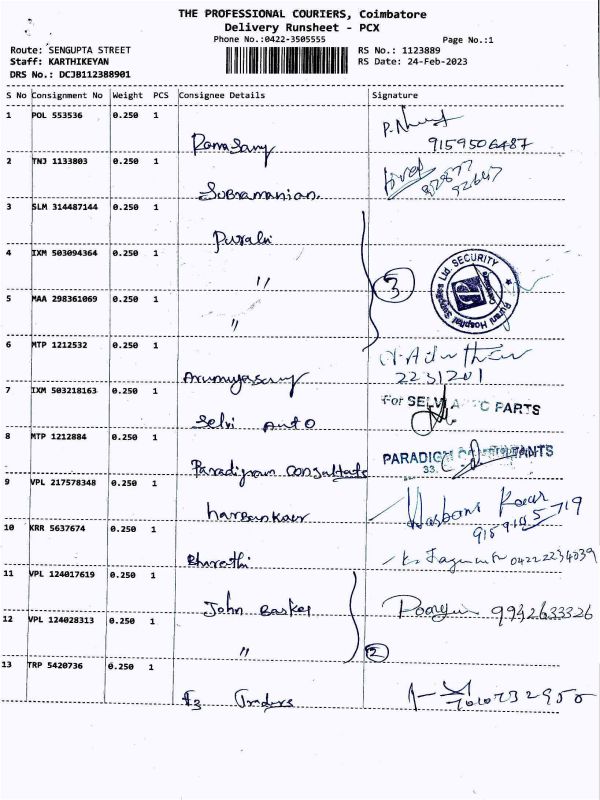 THE PROFESSIONAL COURIERS, Coimbatore
Delivery Runsheet - PCX
Phone No.:0422-3505555
Page No.:1
Route: SENGUPTA STREET
RS No.: 1123889
Staff: KARTHIKEYAN
RS Date: 24-Feb-2023
DRS No.: DCJB112388901
S No Consignment No Weight PCS Consignee Details Signature
1 POL 553536 0.250 1
Ramasamy
9159506487
2 TNJ 1133803 0.250 1
Subramanian.
3 SLM 314487144 0.250 1
4 IXM 503094364 0.250 1
"
3
Ltd. SECURITY
Hospital
5 MAA 298361069 0.250 1
"
6 MTP 1212532 0.250 1
2231201
7 IXM 503218163 0.250 1
For SELVI AUTO PARTS
Selvi Auto
8 MTP 1212884 0.250 1
PARADIGM CONSULTANTS
33,
Paradigram Consultate
9 VPL 217578348 0.250 1
harbanskaur
10 KRR 5637674 0.250 1
Bharathi
04222234039
11 VPL 124017619 0.250 1
John Basker
9942633326
12 VPL 124028313 0.250 1
"
2
13 TRP 5420736 0.250 1
Traders